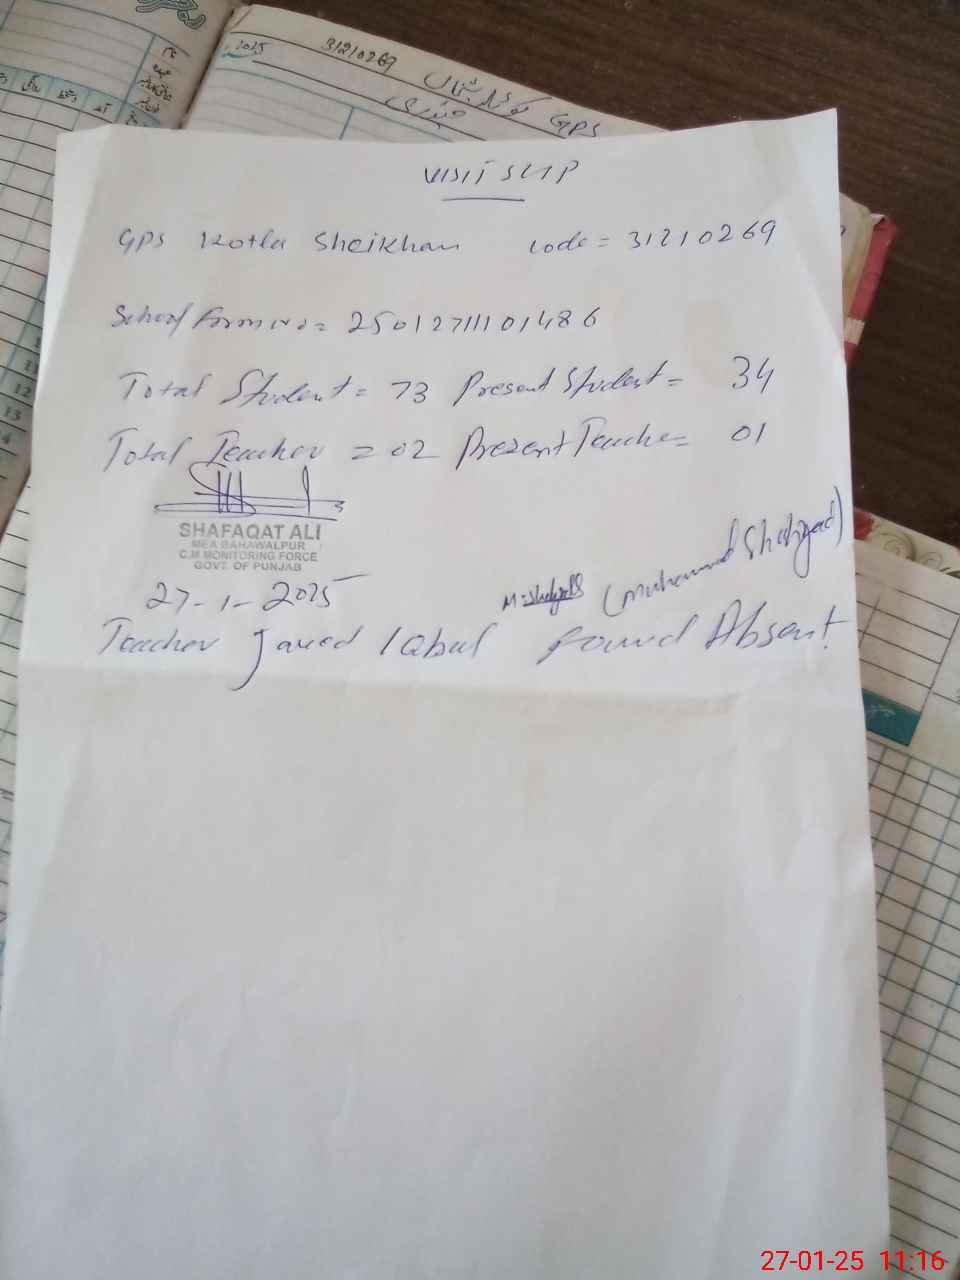 2025
31210269
GPS
VISIT SLIP
GPS Kotla Sheikhan code = 31210269
School Form No = 25012711101486
Total Student = 73 Present Student = 34
Total Teacher = 02 Present Teacher = 01
SHAFAQAT ALI
MEA BAHAWALPUR
C.M MONITORING FORCE
GOVT. OF PUNJAB
27-1-2025
(Muhammad Shahzad)
Teacher Javed Iqbal found Absent.
11
12
13
14
27-01-25 11:16